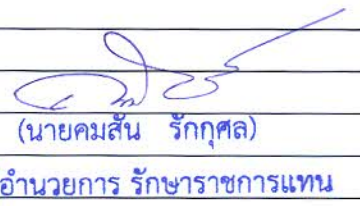 (นายคมสัน รักกุศล)
อำนวยการ รักษาราชการแทน